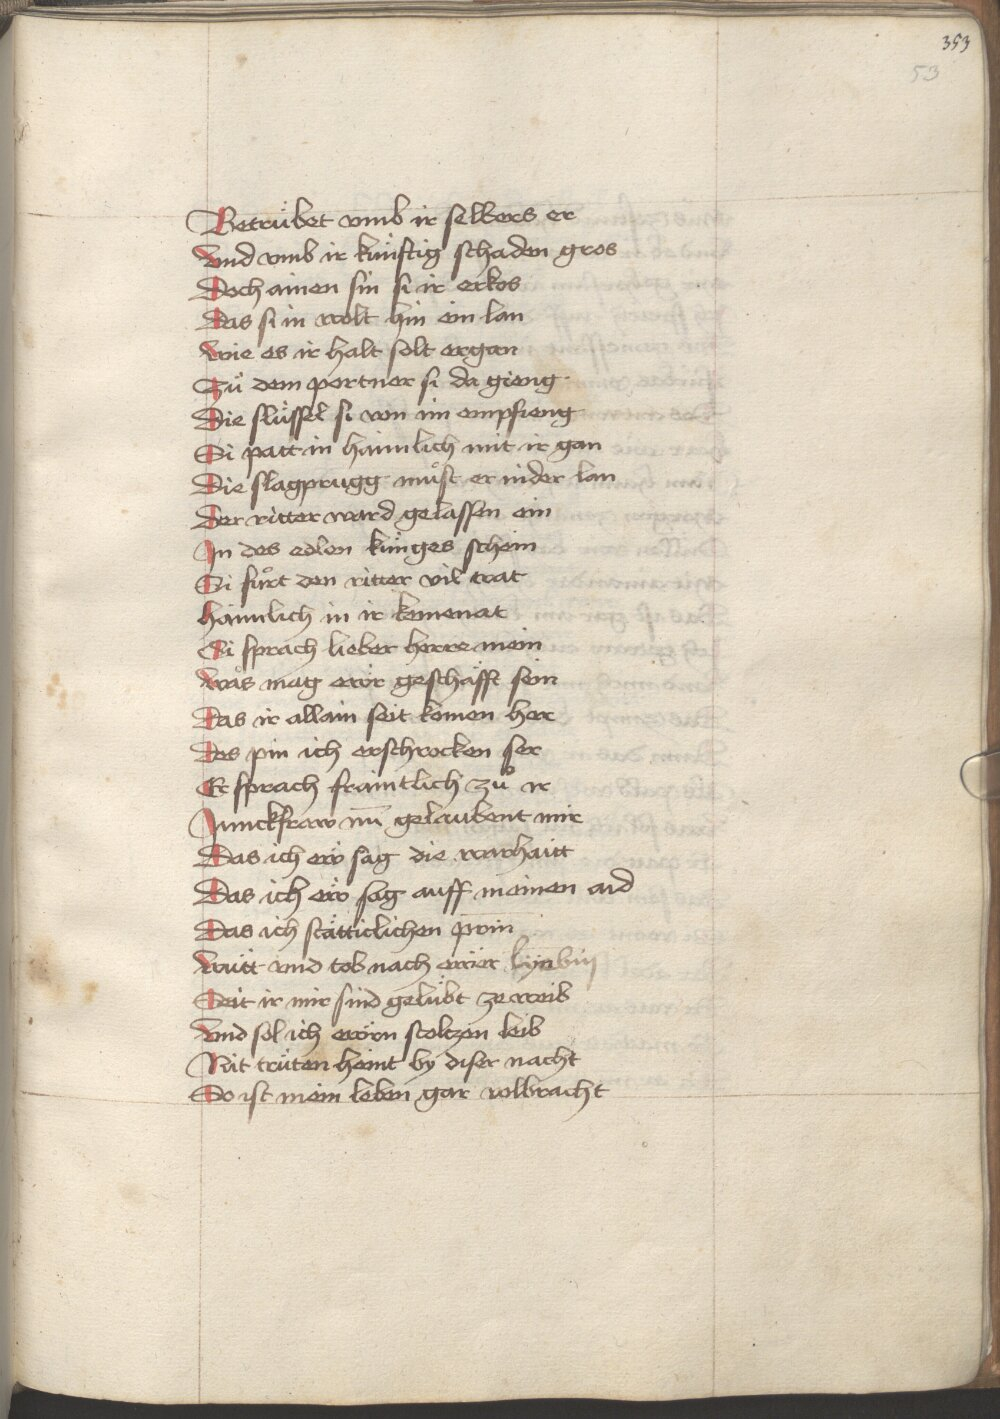 353
53
Betrübet vmb ir selbers er
Vnd vmb ir künftig schaden gros
Doch ainen sin si ir erkos
Das si in wolt hin ein lan
Wie es ir halt solt ergan
Zů dem portner si da gieng
Die slüssel si von im empfieng
Si patt in haimlich mit ir gan
Die slagprugg můst er nider lan
Der ritter ward gelassen ein
In des edlen künges schein
Si fůrt den ritter vil trat
Haimlich in ir kemenat
Si sprach lieber herre mein
Was mag ewr geschäfft sein
Das ir allain seit komen her
Des pin ich erschrocken ser
Er sprach fraintlich zů ir
Junckfraw nū gelaubent mir
Das ich ew sag die warhaitt
Das ich ew sag auff meinen aid
Das ich stätticlichen prinn
Wütt vnd tob nach ewer
Seit ir mir sind gelübt ze weib
Vnd sol ich ewrn stoltzen leib
Nit trüten heint by diser nacht
So ist mein leben gar volbracht